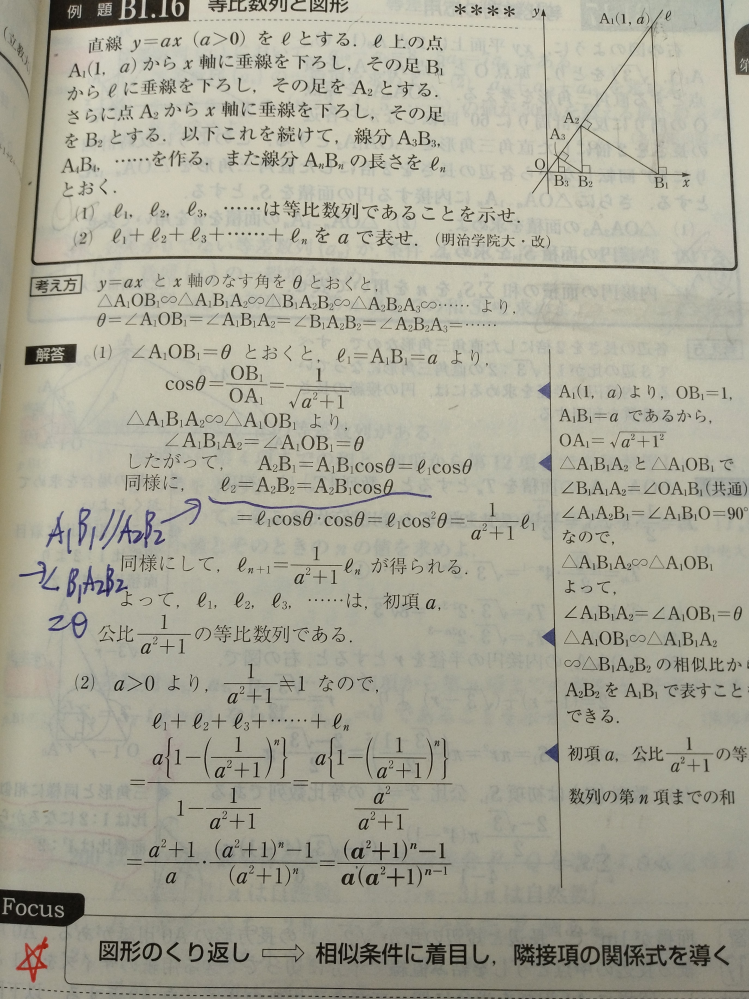 例題 B1.16 等比数列と図形 ****
直線 y=ax (a>0) を ℓ とする. ℓ 上の点
A₁(1, a) から x 軸に垂線を下ろし, その足 B₁
から ℓ に垂線を下ろし, その足を A₂ とする.
さらに点 A₂ から x 軸に垂線を下ろし, その足
を B₂ とする. 以下これを続けて, 線分 A₃B₃,
A₄B₄, ……を作る. また線分 AₙBₙ の長さを ℓₙ
とおく.
(1) ℓ₁, ℓ₂, ℓ₃, ……は等比数列であることを示せ.
(2) ℓ₁+ℓ₂+ℓ₃+……+ℓₙ を a で表せ. (明治学院大・改)
y
A₁(1, a)
ℓ
A₂
A₃
O
B₃
B₂
B₁
x
考え方 y=ax と x 軸のなす角を θ とおくと,
△A₁OB₁∽△A₁B₁A₂∽△B₁A₂B₂∽△A₂B₂A₃∽…… より,
θ=∠A₁OB₁=∠A₁B₁A₂=∠B₁A₂B₂=∠A₂B₂A₃=……
解答 (1) ∠A₁OB₁=θ とおくと, ℓ₁=A₁B₁=a より,
cosθ=OB₁/OA₁=1/√(a²+1)
△A₁B₁A₂∽△A₁OB₁ より,
∠A₁B₁A₂=∠A₁OB₁=θ
したがって, A₂B₁=A₁B₁cosθ=ℓ₁cosθ
同様に, ℓ₂=A₂B₂=A₂B₁cosθ
=ℓ₁cosθ・cosθ=ℓ₁cos²θ=1/(a²+1) ℓ₁
同様にして, ℓₙ₊₁=1/(a²+1) ℓₙ が得られる.
よって, ℓ₁, ℓ₂, ℓ₃, ……は, 初項 a,
公比 1/(a²+1) の等比数列である.
A₁B₁//A₂B₂ →
→∠B₁A₂B₂
=θ
(2) a>0 より, 1/(a²+1)≠1 なので,
ℓ₁+ℓ₂+ℓ₃+……+ℓₙ
=a{1−(1/(a²+1))ⁿ}/(1−1/(a²+1))=a{1−(1/(a²+1))ⁿ}/(a²/(a²+1))
=(a²+1)/a・((a²+1)ⁿ−1)/(a²+1)ⁿ=((a²+1)ⁿ−1)/(a(a²+1)ⁿ⁻¹)
A₁(1, a) より, OB₁=1,
A₁B₁=a であるから,
OA₁=√(a²+1²)
△A₁B₁A₂ と △A₁OB₁ で
∠B₁A₁A₂=∠OA₁B₁(共通)
∠A₁A₂B₁=∠A₁B₁O=90°
なので,
△A₁B₁A₂∽△A₁OB₁
よって,
∠A₁B₁A₂=∠A₁OB₁=θ
△A₁OB₁∽△A₁B₁A₂
∽△B₁A₂B₂ の相似比から
A₂B₂ を A₁B₁ で表すこと
できる.
初項 a, 公比 1/(a²+1) の等
数列の第 n 項までの和
Focus
図形のくり返し ⟹ 相似条件に着目し, 隣接項の関係式を導く